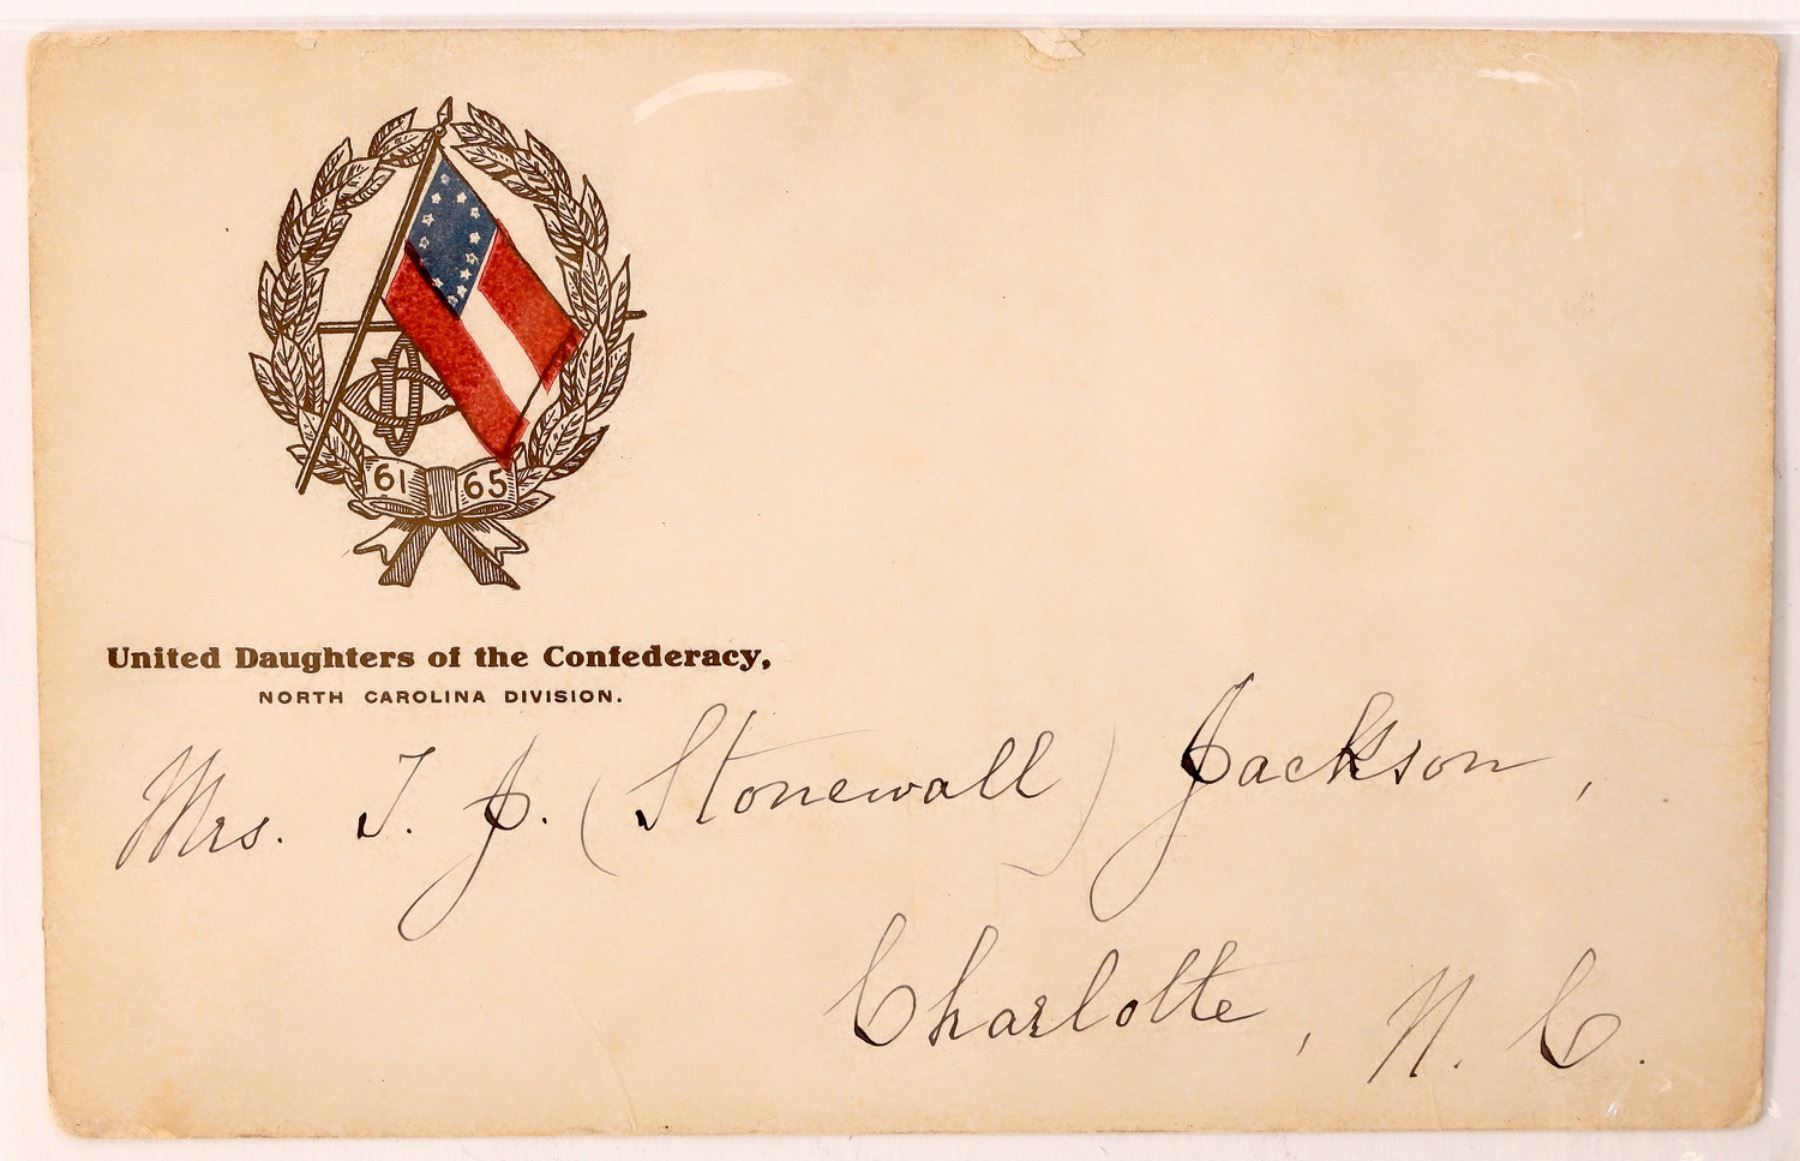 61 65
United Daughters of the Confederacy,
NORTH CAROLINA DIVISION.
Mrs. T. J. (Stonewall) Jackson,
Charlotte, N. C.